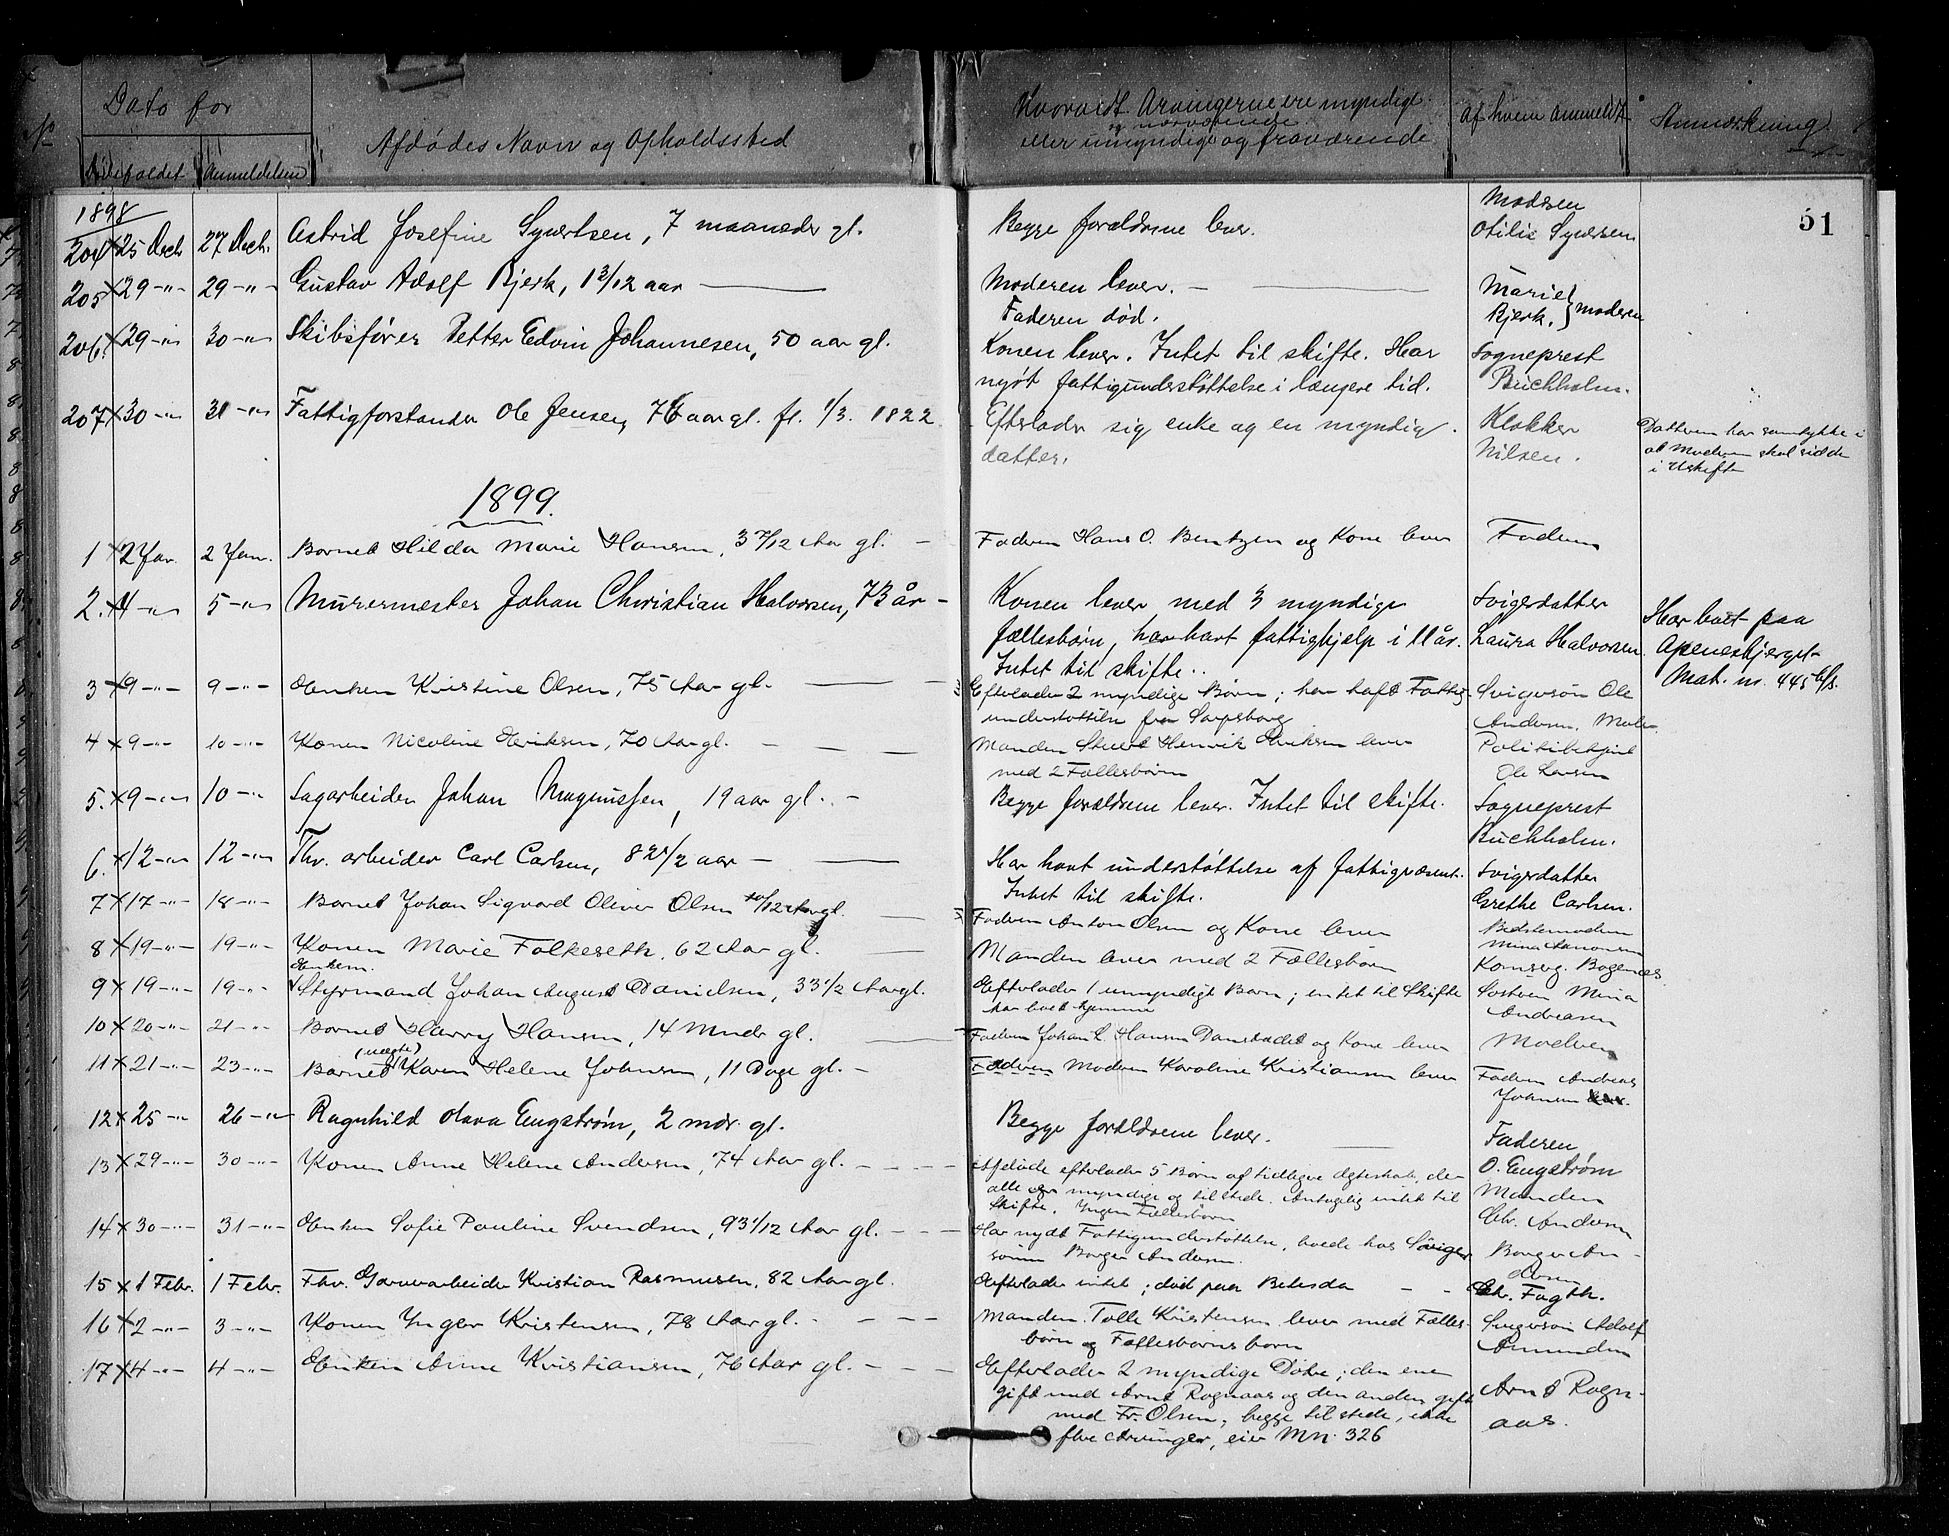 No
Dato for
Dødsfaldet
Anmeldelsen
Afdødes Navn og Opholdssted
Hvorvidt Arvingerne ere myndige
eller umyndige og nærværende og fraværende
Af hvem anmeldt
Anmærkning
51
1898
204 x 25 Decb. 27 Decb. Astrid Josefine Syvertsen, 7 maaneder gl. Begge forældrene lever. Moderen
Otilie Syversen
205 x 29 -"- 29 -"- Gustav Adolf Bjerk, 1 3/12 aar — Moderen lever. — Marie } moderen
Faderen død. Bjerk.
206. x 29 -"- 30 -"- Skibsfører Petter Edvin Johannesen, 50 aar gl. Konen lever. Intet til skifte. Har Sogneprest
nydt fattigunderstøttelse i længere tid. Buchholm.
207 x 30 -"- 31 -"- Fattigforstander Ole Jensen, 76 aar gl. f. 1/3. 1822 Efterlader sig enke og en myndig Klokker
datter. Nilsen.
Datteren har samtykke i
at Moderen skal sidde
i Uskifte
1899.
1 x 2 Jan. 2 Jan. Barnet Hilda Marie Hansen, 3 7/12 Aar gl. — Faderen Hans O. Bentzen og Kone lever Faderen
2. x 4 -"- 5 -"- Murermester Johan Christian Halvorsen, 73 år — Konen lever med 3 myndige Svigerdatter
fællesbørn, har havt fattighjelp i 11 år. Laura Halvorsen.
Intet til skifte.
Har boet paa
Apenesbjerget
Mat. nr. 445 b/s.
3 x 9 -"- 9 -"- Enken Kristine Olsen, 75 Aar gl. — Efterlader 2 myndige Børn; har haft Fattig- Svigersøn Ole
understøttelse fra Sarpsborg Andersen,
4 x 9 -"- 10 -"- Konen Nicoline Henriksen, 70 Aar gl. — Manden Stuert Henrik Henriksen lever Politibetjent
med 2 Fællesbørn Ole Larsen
5. x 9 -"- 10 -"- Sagarbeider Johan Magnussen, 19 aar gl. — Begge forældrene lever. Intet til skifte. Sogneprest
Buchholm.
6. x 12 -"- 12 -"- Fhv. arbeider Carl Carlsen, 82 1/2 aar — Har havt understøttelse af fattigvæsenet. Svigerdatter
Intet til skifte. Grethe Carlsen.
7 x 17 -"- 18 -"- Barnet Johan Sigvard Oliver Olsen 10/12 Aar gl. — Faderen Anton Olsen og Kone lever Bedstemoderen
Mina
8 x 19 -"- 19 -"- Konen Marie Folkeseth, 62 Aar gl. — Manden lever med 2 Fællesbørn
Enkem.
9 x 19 -"- 19 -"- Styrmand Johan August Danielsen, 33 1/2 Aar gl. Efterlader 1 umyndigt Barn; intet til Skifte Søsteren Mina
har boet hjemme Andreasen
10 x 20 -"- 21 -"- Barnet Harry Hansen, 14 Mndr gl. — Faderen Johan L. Hansen og Kone lever Moderen
(uægte)
11 x 21 -"- 23 -"- Barnet Karen Helene Johnsen, 11 Dage gl. — Faderen Moderen Karoline Kristiansen lever Faderen Andreas
Johnsen
12 x 25 -"- 26 -"- Ragnhild Olava Engstrøm, 2 mdr. gl. Begge forældrene lever. — Faderen
O. Engstrøm
13 x 29 -"- 30 -"- Konen Anne Helene Andersen, 74 Aar gl. — Afdøde efterlader 5 Børn af tidligere Ægteskab, der Manden
alle er myndige og tilstede. Antagelig intet til Chr. Andersen
Skifte. Ingen Fællesbørn
14 x 30 -"- 31 -"- Enken Sofie Pauline Svendsen, 93 1/12 Aar gl. — Har nydt Fattigunderstøttelse, boede hos Sviger- Borger An-
sønn Borger Andersen. dersen
15 x 1 Febr. 1 Febr. Fhv. Garverarbeider Kristian Rasmussen, 82 Aar gl. Efterlader intet; død paa Betesda — Chr. Fagth.
16 x 2 -"- 3 -"- Konen Inger Kristensen, 78 Aar gl. — Manden Tolle Kristensen lever med Fælles- Svigersøn Adolf
børn og Fællesbørns børn Amundsen
17 x 4 -"- 4 -"- Enken Anne Kristiansen, 76 Aar gl. — Efterlader 2 myndige Døtre; den ene Arnt Rogn-
gift med Arnt Rognaas og den anden gift aas.
med Fr. Olsen, begge tilstede, ikke
flere Arvinger, eier Mn. 326